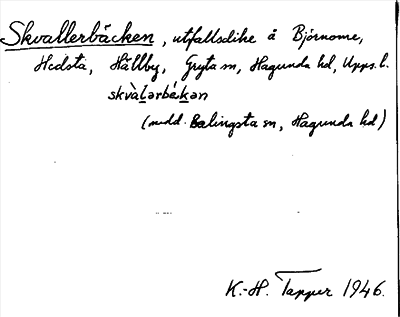 Skvallerbäcken, utfallsdike å Björnome,
Hedsta, Hällby, Gryta sn, Hagunda hd, Upps. l.
skvàlərbä́kən
(medd. Balingsta sn, Hagunda hd)
K.-H. Tapper 1946.